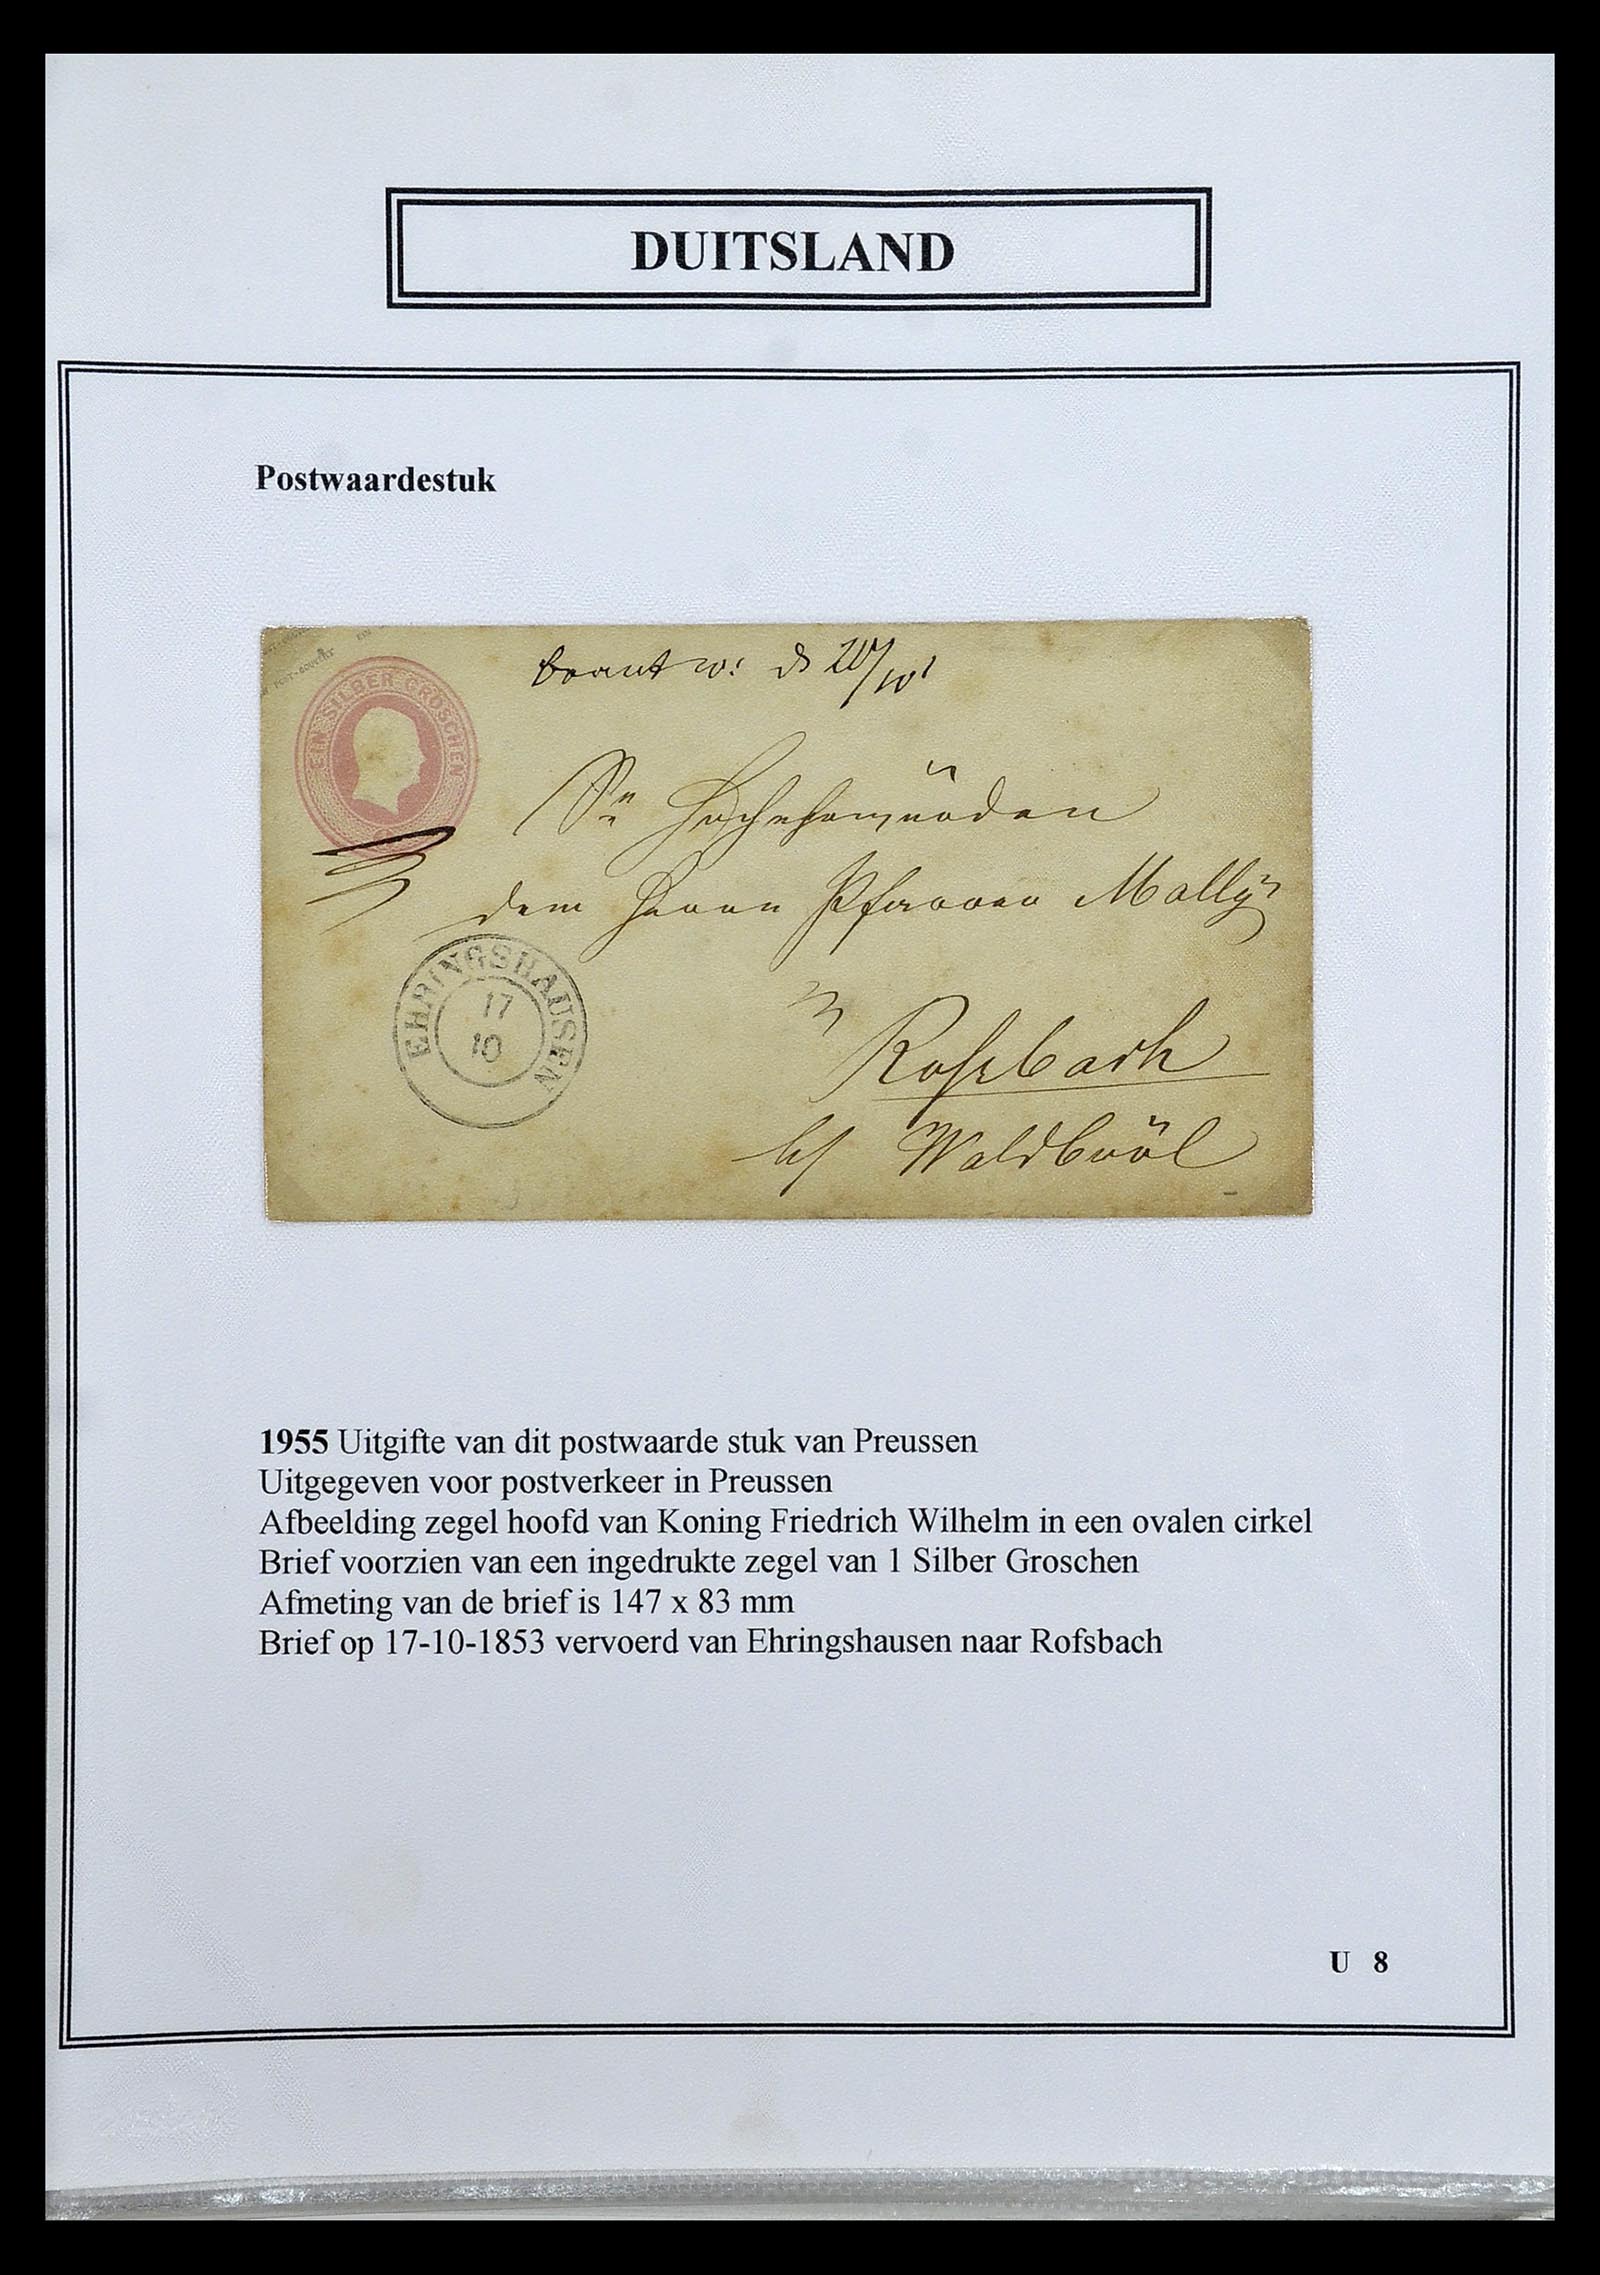 DUITSLAND
Postwaardestuk
POST-COUVERT
EIN
EIN SILBER GROSCHEN
beantw: d 20/10
Sr Hochehrwürden
dem Herrn Pfarrer Mally
in
Rossbach
b/ Waldbröl
EHRINGSHAUSEN
17
10
1955 Uitgifte van dit postwaarde stuk van Preussen
Uitgegeven voor postverkeer in Preussen
Afbeelding zegel hoofd van Koning Friedrich Wilhelm in een ovalen cirkel
Brief voorzien van een ingedrukte zegel van 1 Silber Groschen
Afmeting van de brief is 147 x 83 mm
Brief op 17-10-1853 vervoerd van Ehringshausen naar Rofsbach
U 8